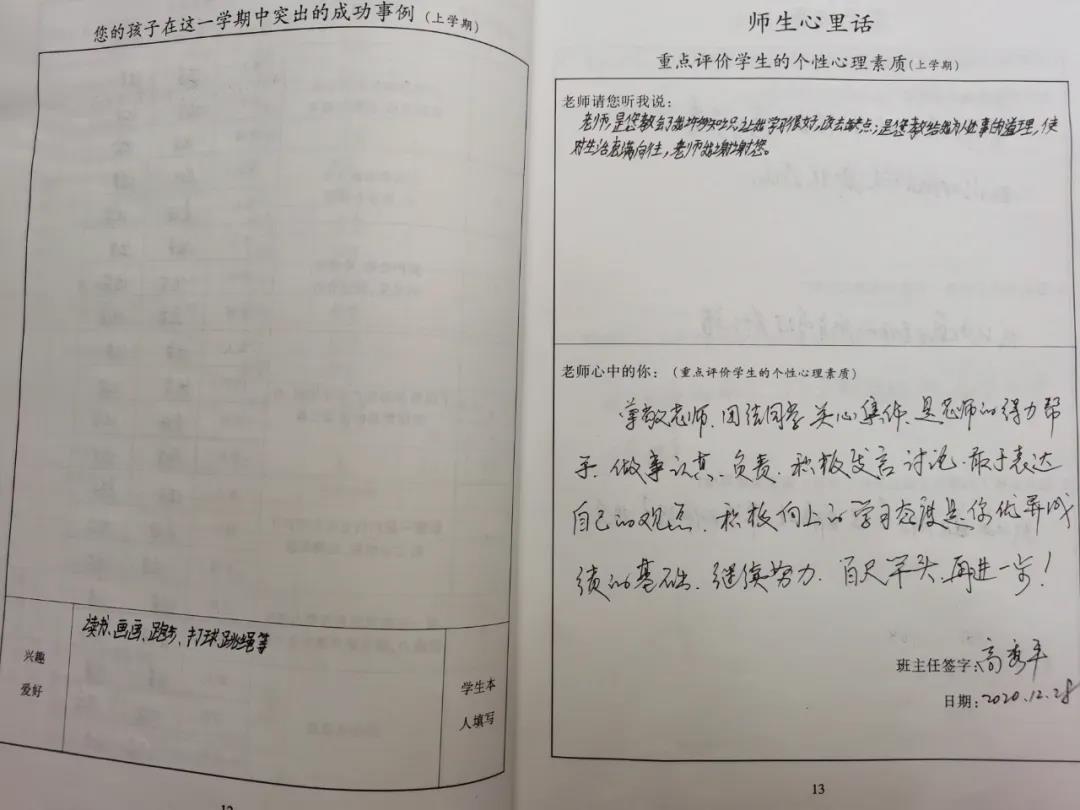 您的孩子在这一学期中突出的成功事例(上学期)
兴趣
爱好
读书、画画、跑步、打球跳绳等
学生本
人填写
12
师生心里话
重点评价学生的个性心理素质(上学期)
老师请您听我说:
老师,是您教会了我许多知识,让我学习很好,改去缺点;是您教给我为人处事的道理,使
对生活充满向往,老师我谢谢您。
老师心中的你:(重点评价学生的个性心理素质)
尊敬老师、团结同学关心集体、是老师的得力帮
手、做事认真、负责、积极发言讨论、敢于表达
自己的观点、积极向上的学习态度是你优异成
绩的基础、继续努力、百尺竿头、再进一步!
班主任签字:高秀平
日期:2020.12.28
13